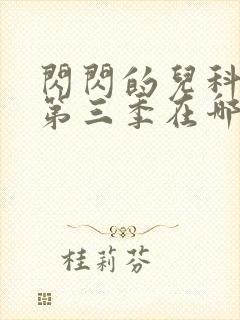 閃閃的兒科
第三季在哪
桂莉芬